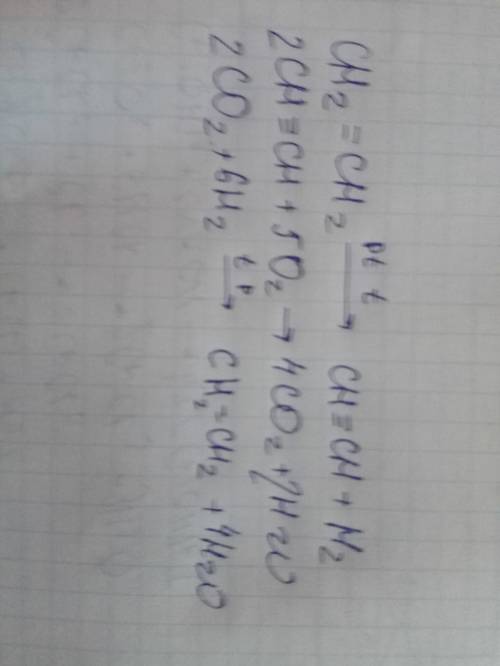 CH₂=CH₂ →(Pt, t) CH≡CH + H₂
2CH≡CH + 5O₂ → 4CO₂ + 2H₂O
2CO₂ + 6H₂ →(t, p) CH₂=CH₂ + 4H₂O